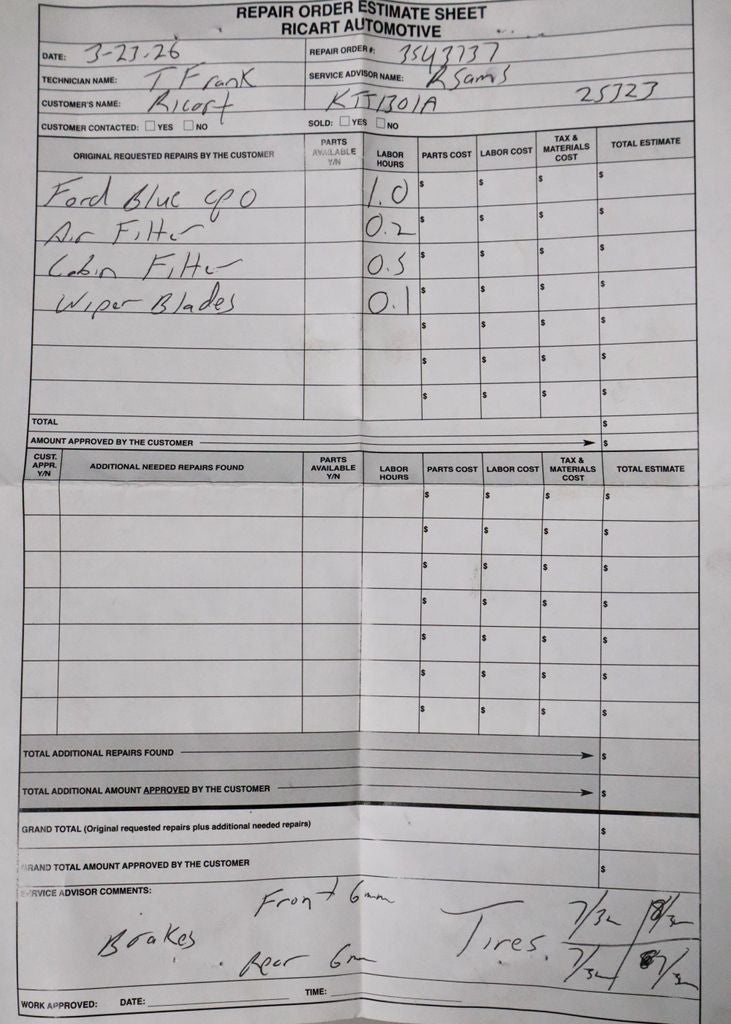 REPAIR ORDER ESTIMATE SHEET
RICART AUTOMOTIVE
DATE: 3-23-26 REPAIR ORDER #: 3543737
TECHNICIAN NAME: T Frank SERVICE ADVISOR NAME: R Sams
CUSTOMER'S NAME: Ricart KTJ1301A 25323
CUSTOMER CONTACTED: ☐ YES ☐ NO SOLD: ☐ YES ☐ NO
ORIGINAL REQUESTED REPAIRS BY THE CUSTOMER PARTS AVAILABLE Y/N LABOR HOURS PARTS COST LABOR COST TAX & MATERIALS COST TOTAL ESTIMATE
Ford Blue CPO 1.0 $ $ $ $
Air Filter 0.2 $ $ $ $
Cabin Filter 0.5 $ $ $ $
Wiper Blades 0.1 $ $ $ $
$ $ $ $
$ $ $ $
$ $ $ $
TOTAL $
AMOUNT APPROVED BY THE CUSTOMER $
CUST. APPR. Y/N ADDITIONAL NEEDED REPAIRS FOUND PARTS AVAILABLE Y/N LABOR HOURS PARTS COST LABOR COST TAX & MATERIALS COST TOTAL ESTIMATE
$ $ $ $
$ $ $ $
$ $ $ $
$ $ $ $
$ $ $ $
$ $ $ $
$ $ $ $
TOTAL ADDITIONAL REPAIRS FOUND $
TOTAL ADDITIONAL AMOUNT APPROVED BY THE CUSTOMER $
GRAND TOTAL (Original requested repairs plus additional needed repairs) $
GRAND TOTAL AMOUNT APPROVED BY THE CUSTOMER $
SERVICE ADVISOR COMMENTS:
Front 6mm
Brakes
Rear 6mm
Tires 7/32 8/32
7/32 7/32
WORK APPROVED: DATE: TIME: